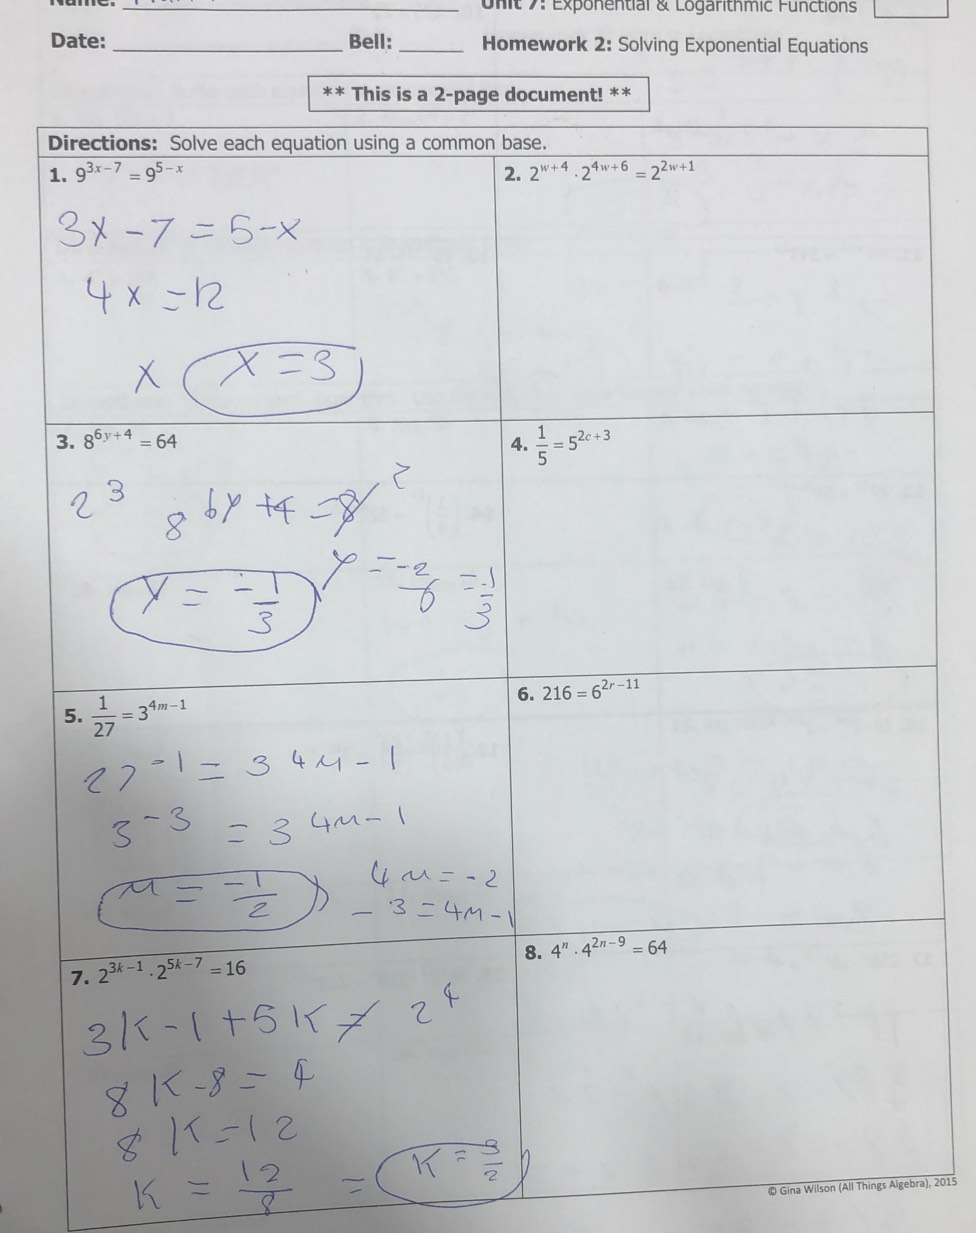 Name:
Unit 7: Exponential & Logarithmic Functions
Date: Bell: Homework 2: Solving Exponential Equations
** This is a 2-page document! **
Directions: Solve each equation using a common base.
1. 9^{3x-7} = 9^{5-x}
3x - 7 = 5 - x
4x = 12
x x = 3
2. 2^{w+4} · 2^{4w+6} = 2^{2w+1}
3. 8^{6y+4} = 64
2^3 8^{6y+4} = 8^2
y = -2/6 = -1/3
y = -1/3
4. 1/5 = 5^{2c+3}
5. 1/27 = 3^{4m-1}
27^{-1} = 3^{4m-1}
3^{-3} = 3^{4m-1}
4m = -2
m = -1/2
-3 = 4m-1
6. 216 = 6^{2r-11}
7. 2^{3k-1} · 2^{5k-7} = 16
3k - 1 + 5k 7 2^4
8k - 8 = 4
8k = 12
k = 12/8 = k = 3/2
8. 4^n · 4^{2n-9} = 64
© Gina Wilson (All Things Algebra), 2015